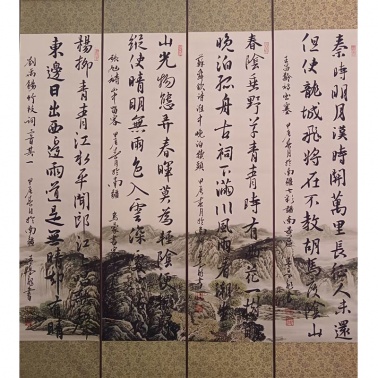 秦時明月漢時關萬里長征人未還
但使龍城飛將在不教胡馬度陰山
王昌齡出塞
春陰垂野草青青時有幽花一樹明
晚泊孤舟古祠下滿川風雨看潮生
蘇舜欽詩淮中晚泊犢頭
山光物態弄春暉莫為輕陰便擬歸
縱使晴明無雨色入雲深處亦沾衣
張旭詩山中留客
楊柳青青江水平聞郎江上唱歌聲
東邊日出西邊雨道是無晴却有晴
劉禹錫竹枝詞二首其一